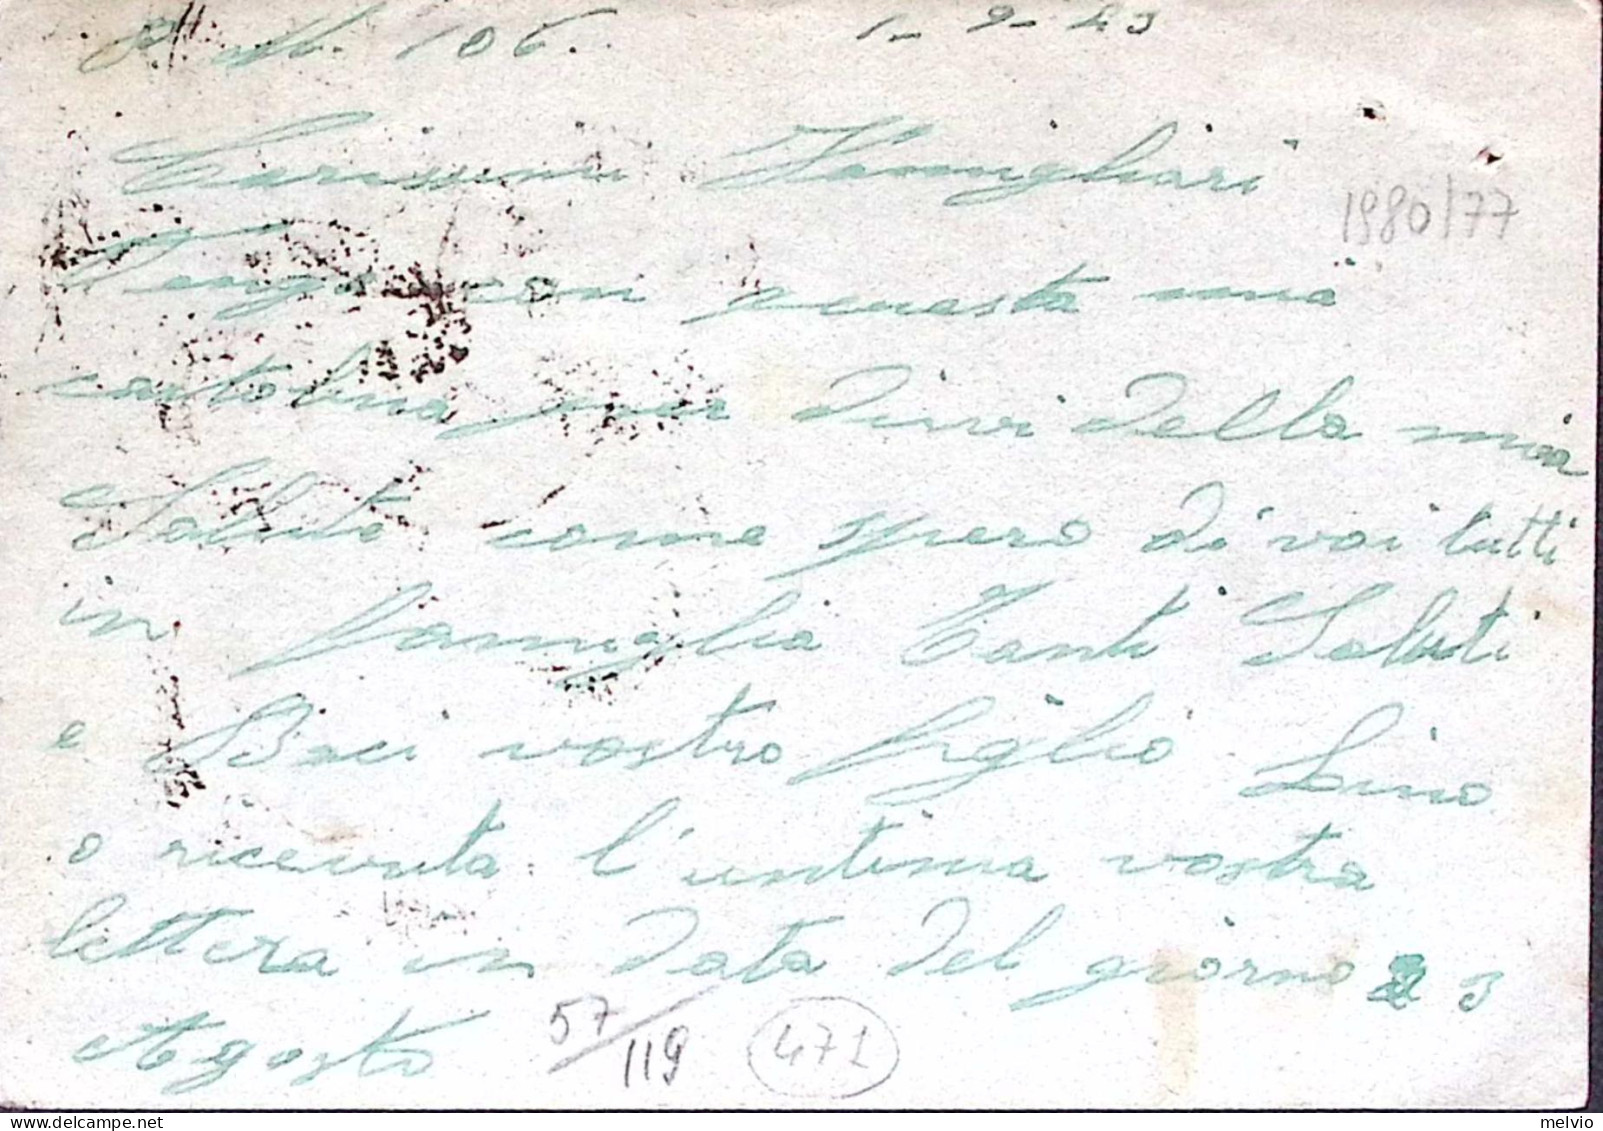 P. M. 106. 1-9-43
Carissimi Famigliari
1980/77
Vengo con questa mia
cartolina per dirvi della mia
Salute come spero di voi tutti
in famiglia Tanti Saluti
e Baci vostro figlio Lino
o ricevuta l'untima vostra
lettera in data del giorno 3
Agosto 57/119 471
melvio